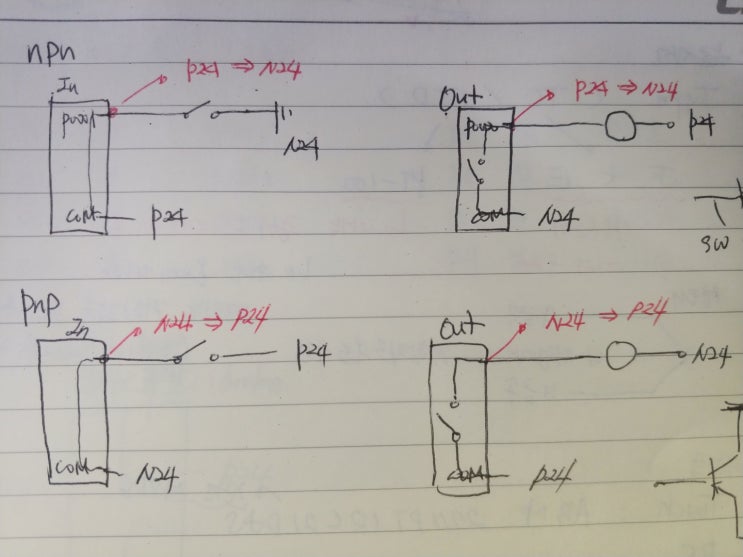 npn
In
P24 ⇒ N24
P000
N24
COM
P24
Out
P24 ⇒ N24
P24
COM
N24
SW
pnp
In
N24 ⇒ P24
P24
COM
N24
Out
N24 ⇒ P24
N24
COM
P24